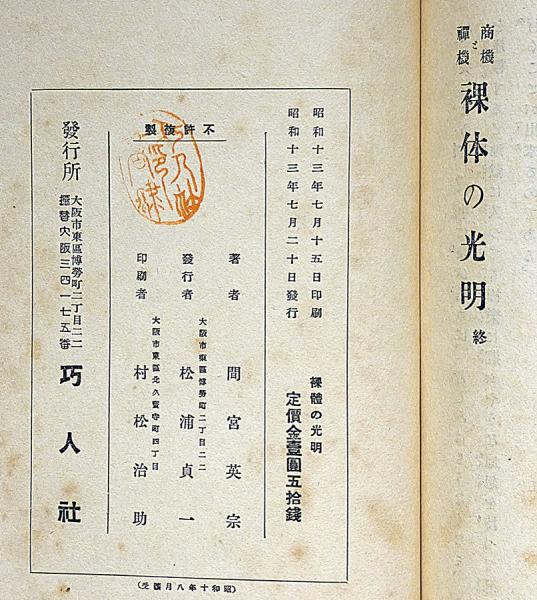 商機と禪機
裸体の光明 終
昭和十三年七月十五日印刷
昭和十三年七月二十日發行
裸體の光明
定價金壹圓五拾錢
不許複製
著者 間宮英宗
大阪市東區博勞町二丁目二二
發行者 松浦貞一
大阪市東區北久寳寺町四丁目
印刷者 村松治助
發行所
大阪市東區博勞町二丁目二二
振替大阪三四一七五番
巧人社